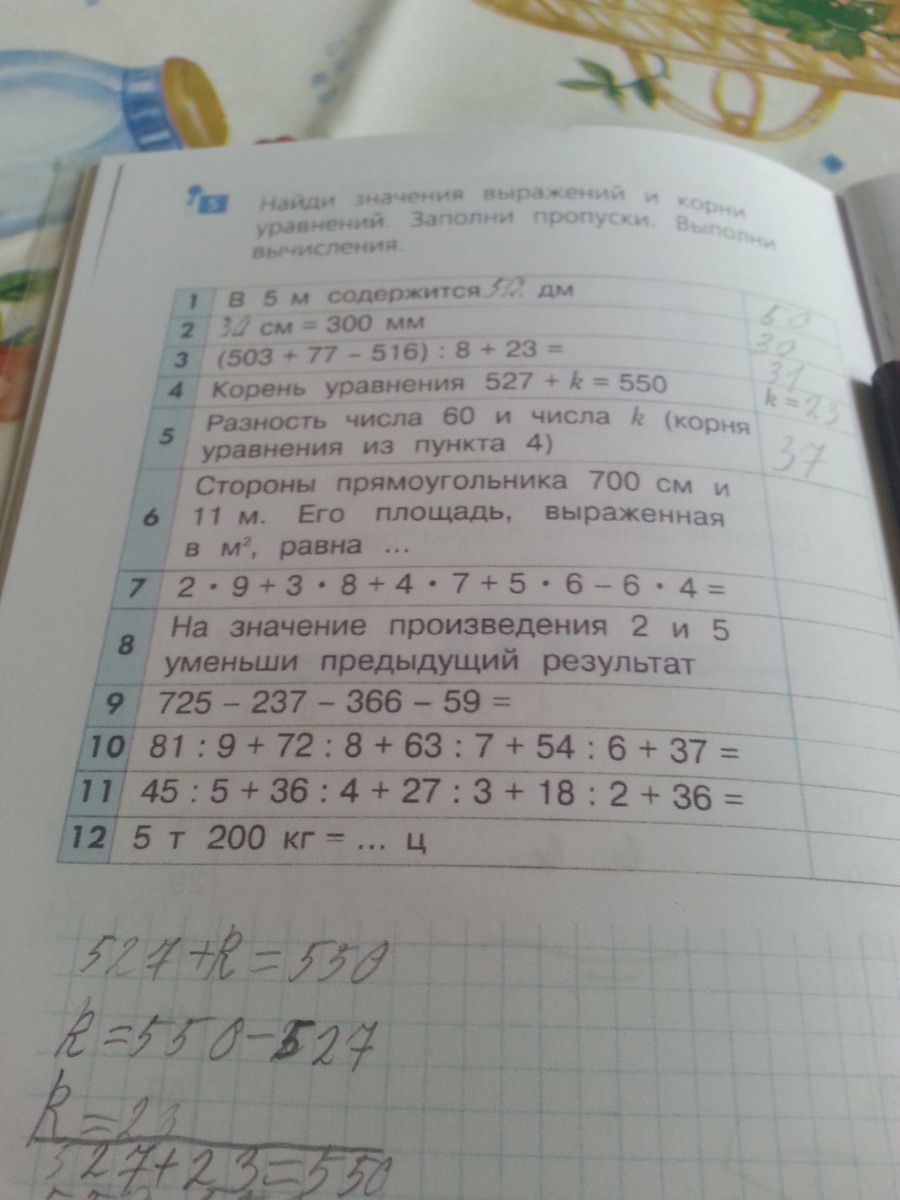 5 Найди значения выражений и корни
уравнений. Заполни пропуски. Выполни
вычисления.
1 В 5 м содержится 50 дм 50
2 30 см = 300 мм 30
3 (503 + 77 – 516) : 8 + 23 = 31
4 Корень уравнения 527 + k = 550 k = 23
5 Разность числа 60 и числа k (корня
уравнения из пункта 4) 37
6 Стороны прямоугольника 700 см и
11 м. Его площадь, выраженная
в м², равна ...
7 2 · 9 + 3 · 8 + 4 · 7 + 5 · 6 – 6 · 4 =
8 На значение произведения 2 и 5
уменьши предыдущий результат
9 725 – 237 – 366 – 59 =
10 81 : 9 + 72 : 8 + 63 : 7 + 54 : 6 + 37 =
11 45 : 5 + 36 : 4 + 27 : 3 + 18 : 2 + 36 =
12 5 т 200 кг = ... ц
527+k=550
k=550-527
k=23
527+23=550